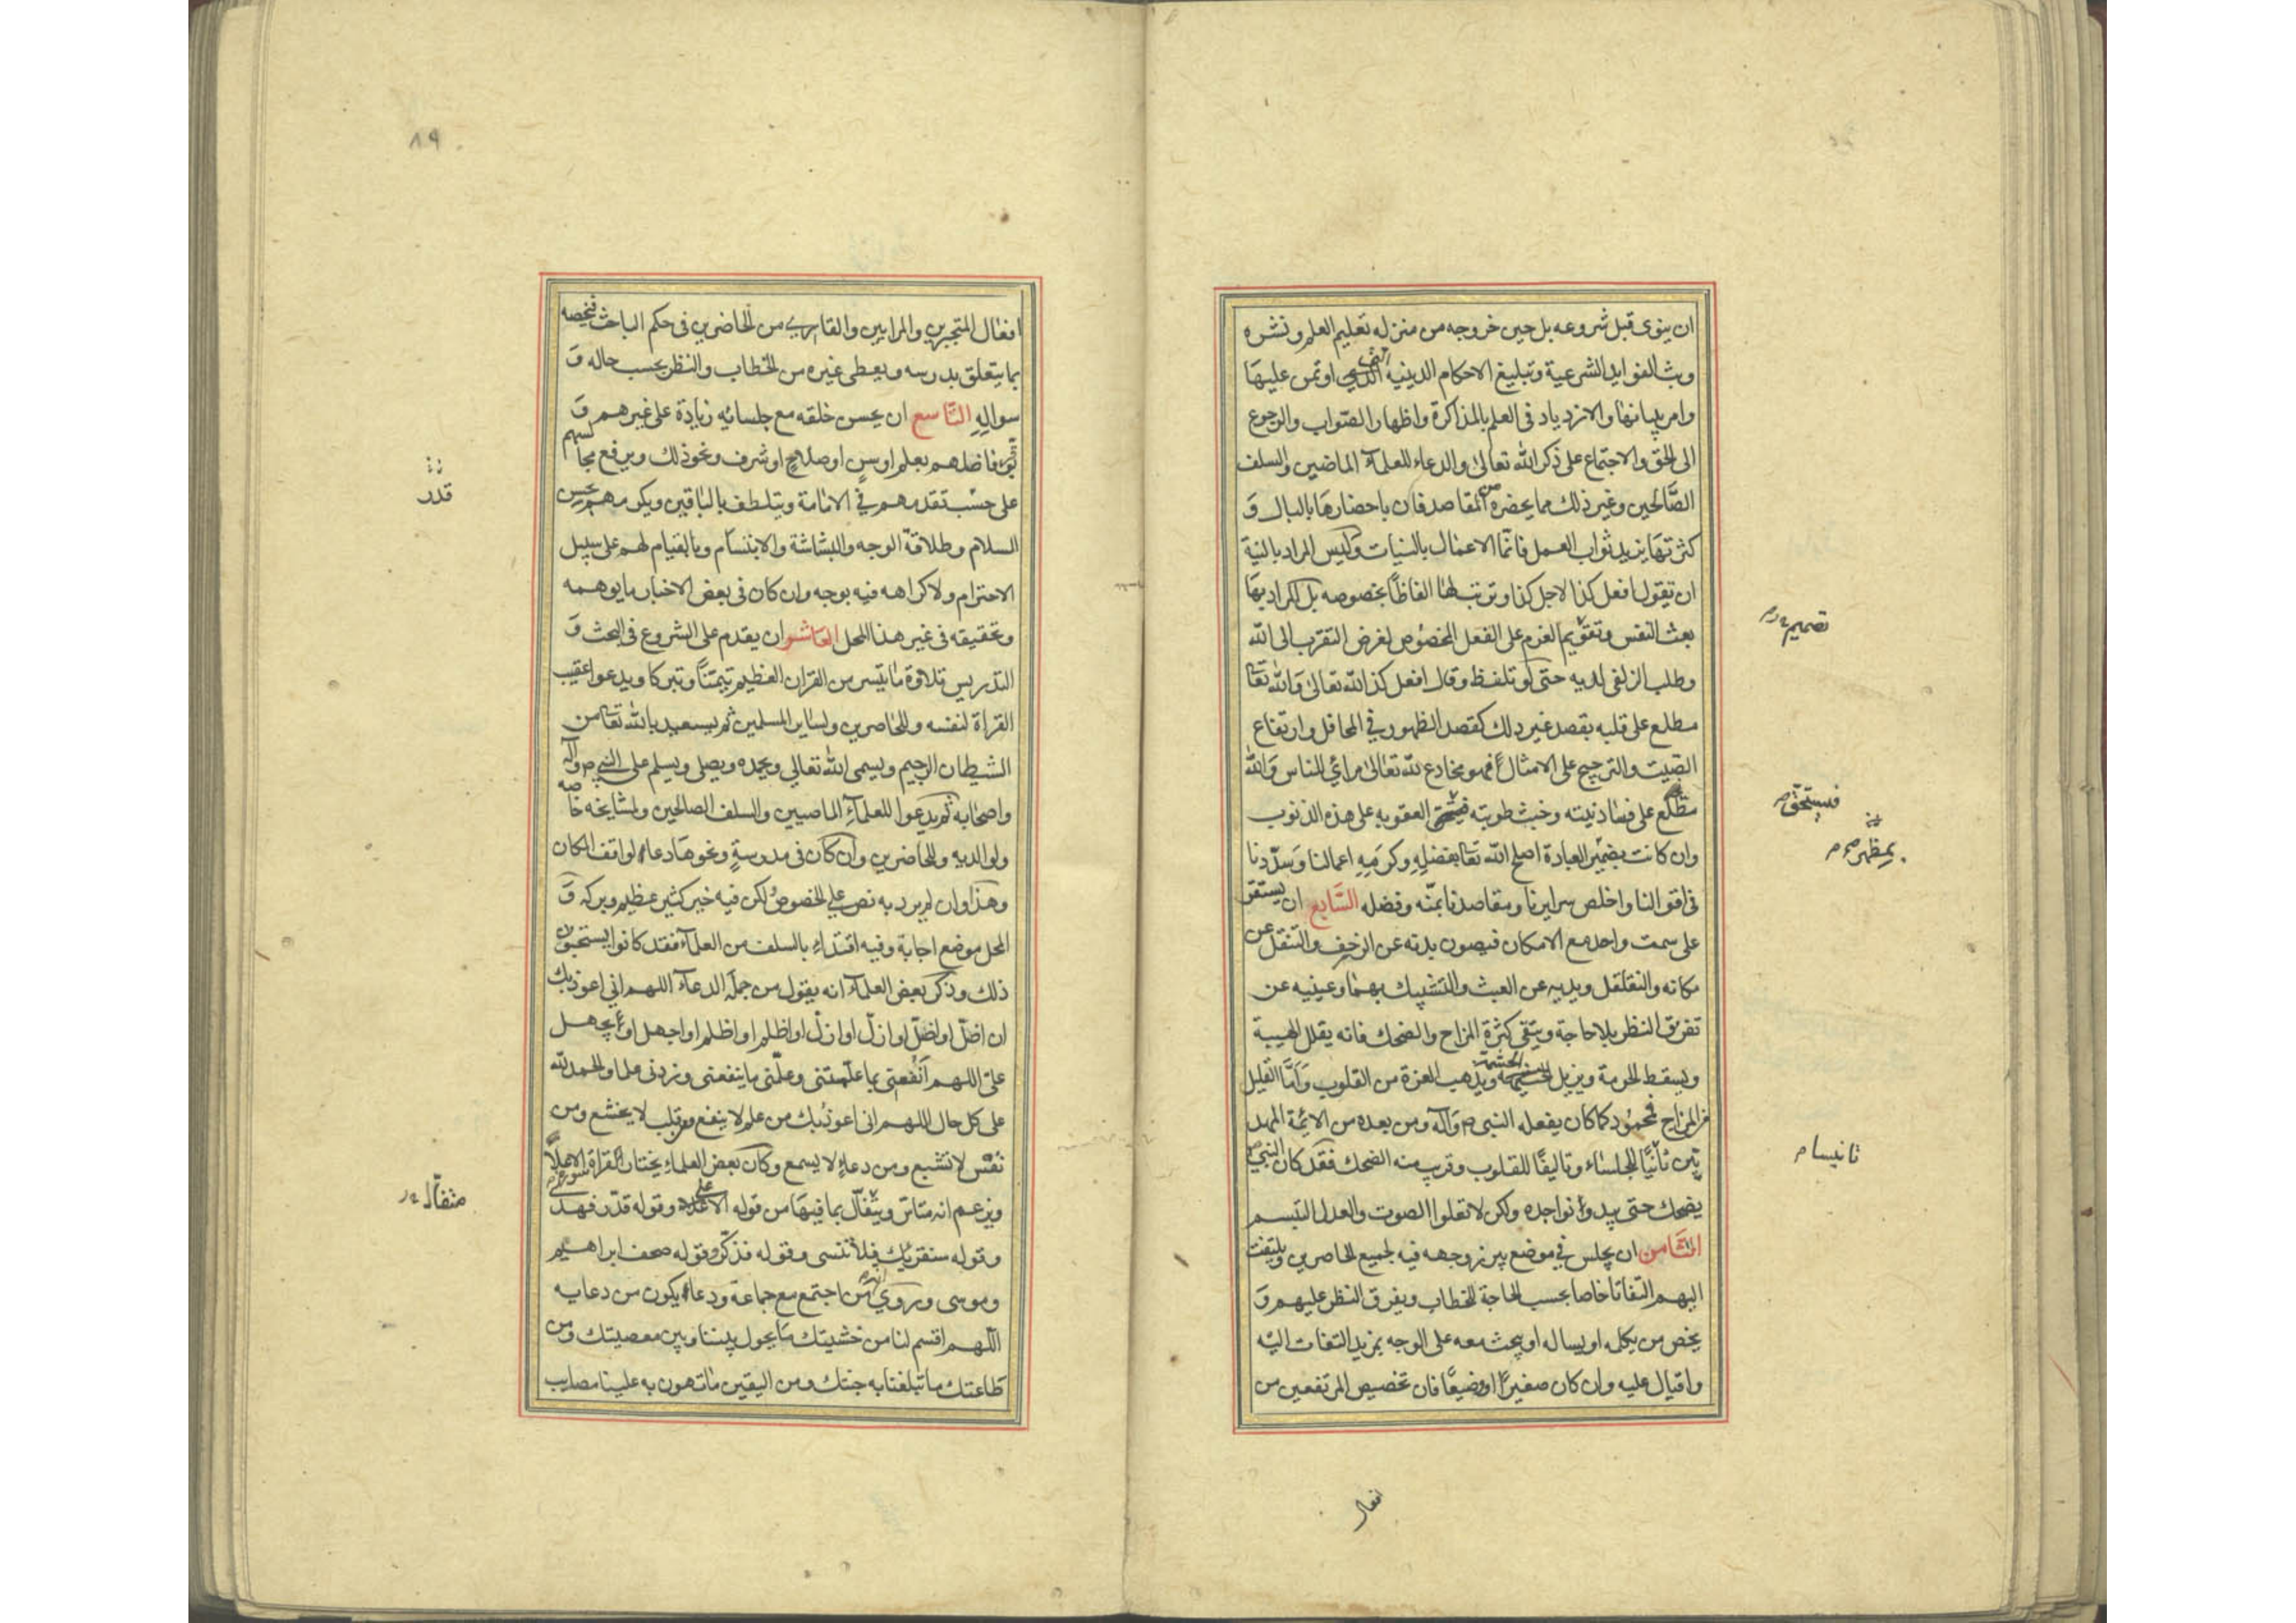 ان ينوى قبل شروعه بل حين خروجه من منزله تعليم العلم ونشره
وبث الفوايد الشرعية وتبليغ الاحكام الدينية التى اوتمن عليها
وامر ببيانها والازدياد فى العلم بالمذاكرة واظهار الصّواب والرجوع
الى الحق والاجتماع على ذكر الله تعالى والدعاء للعلمآء الماضين والسلف
الصَّالحين وغير ذلك مما يحضره من المقاصد فان باحضارها بالبال وَ
كثرتها يزيد ثواب العمل فانّما الاعمال بالنيات وليس المراد بالنية
ان تقول افعل كذا لاجل كذا وترتب لها الفاظًا بخصوصه بل المراد بها
بعث النفس وتقويم العزم على الفعل المخصوص لغرض التقرب الى الله
وطلب الزلفى لديه حتى لو تلفظ وقال افعل كذا لله تعالى وَالله تعا
مطلع على قلبه بقصد غير ذلك كقصد الظهور فى المحافل وارتفاع
الصّيت والترجيح على الامثال فهو مخادع لله تعالى مرائي للناس وَالله
مطّلع على فساد نيته وخبث طويته فيستحق العقوبه على هذه الذنوب
وان كانت بضمير العبادة اصلح الله تعا بفضلِهِ وكرمِهِ اعمالنا وَسدّدنا
فى اقوالنا واخلص سرايرنا ومقاصدنا بمنّه وفضله السَّابع ان يستقر
على سمت واحد مع الامكان فيصون بدنه عن الزحف والتنقل عن
مكانه والتقلقل ويديه عن العبث والتشبيك بهما وعينيه عن
تفريق النظر بلا حاجة ويتقى كثرة المزاح والضحك فانه يقلل الهيبة
ويسقط الحرمة ويزيل الحشمة ويذهب العزة من القلوب وَامَّا القليل
من المزاح فمحمود كما كان يفعله النبى ص وَآله ومن بعده من الائمة المهد
يّين تأنيًّا للجلساء وتاليفًا للقلوب وقريب منه الضحك فقد كان النبى ص
يضحك حتى يبدوا نواجده ولكن لا تعلوا الصوت والعدل التبسم
الثَّامن ان يجلس فى موضع يبرز وجهه فيه لجميع الحاضرين ويلتفت
اليهم التفاتا خاصا بحسب الحاجة للخطاب ويفرق النظر عليهم وَ
يخص من يكلمه او يساله او يبحث معه على الوجه بمزيد التفات اليه
واقبال عليه وان كان صغيرًا او وضيعًا فان تخصيص المرتفعين من
تصميم
فيستحق
تانيسا م
افعال
٨٩
افعال المتجبرين والمرايين والقارى من الحاضرين فى حكم الباحث فيخصه
بما يتعلق بدرسه ويعطى غيره من الخطاب والنظر بحسب حاله وَ
سوالِهِ التَّاسع ان يحسن خلقه مع جلسائه زيادة على غيرهم وَ
يوقر فاضلهم بعلم او سن او صلاحٍ او شرف ونحو ذلك ويرفع مجالسهم
على حسب تقدمهم فى الامامة ويتلطف بالباقين ويكرمهم بحسن
السلام وطلاقة الوجه والبشاشة والابتسام وبالقيام لهم على سبيل
الاحترام ولا كراهه فيه بوجه وان كان فى بعض الاخبار ما يوهمه
وتحقيقه فى غير هذا المحل العاشر ان يقدم على الشروع فى البحث وَ
التدريس تلاوة ما تيسر من القران العظيم تيمّنًا وتبركا ويدعو اعقيب
القراة لنفسه وللحاضرين ولساير المسلمين ثم يستعيد بالله تعا من
الشيطان الرجيم ويسمى الله تعالى ويحمده ويصلى ويسلم على النبى ص وآله
واصحابه ثم يدعوا للعلمآءِ الماضيين والسلف الصالحين ولمشايخه خاصه
ولوالديه وللحاضرين وان كان فى مدرسةٍ ونحوها دعا لواقف المكان
وهذا وان لم يرد به نص على الخصوص لكن فيه خير كثير عظيم وبركه وَ
المحل موضع اجابة وفيه اقتداء بالسلف من العلمآء فقد كانوا يستحبون
ذلك وذكر بعض العلمآء انه يقول من جملة الدعآء اللهم انى اعوذ بك
ان اضلّ او اضلّ او ازلّ او ازلّ او اظلم او اظلم او اجهل او يجهل
علىّ اللهم اَنفعنى بما علّمتنى وعلّمنى ما ينفعنى وزدنى علما والحمد لله
على كل حال اللهم انى اعوذ بك من علم لا ينفع ومن قلب لا يخشع ومن
نفس لا تشبع ومن دعاءٍ لا يسمع وكان بعض العلماءِ يختار قراة سورة الاعلى
ويزعم انه متاسّ ويتفأّل بما فيها من قوله الاعلى وقوله قدّر فهدى
وقوله سنقريك فلا تنسى وقوله فذكّر وقوله صحف ابراهيم
وموسى وروى ان من اجتمع مع جماعة ودعا يكون من دعايه
اللّهم اقسم لنا من خشيتك ما يحول بيننا وبين معصيتك ومن
طاعتك ما تبلغنا به جنتك ومن اليقين ما تهون به علينا مصايب
قدر
متفأّل